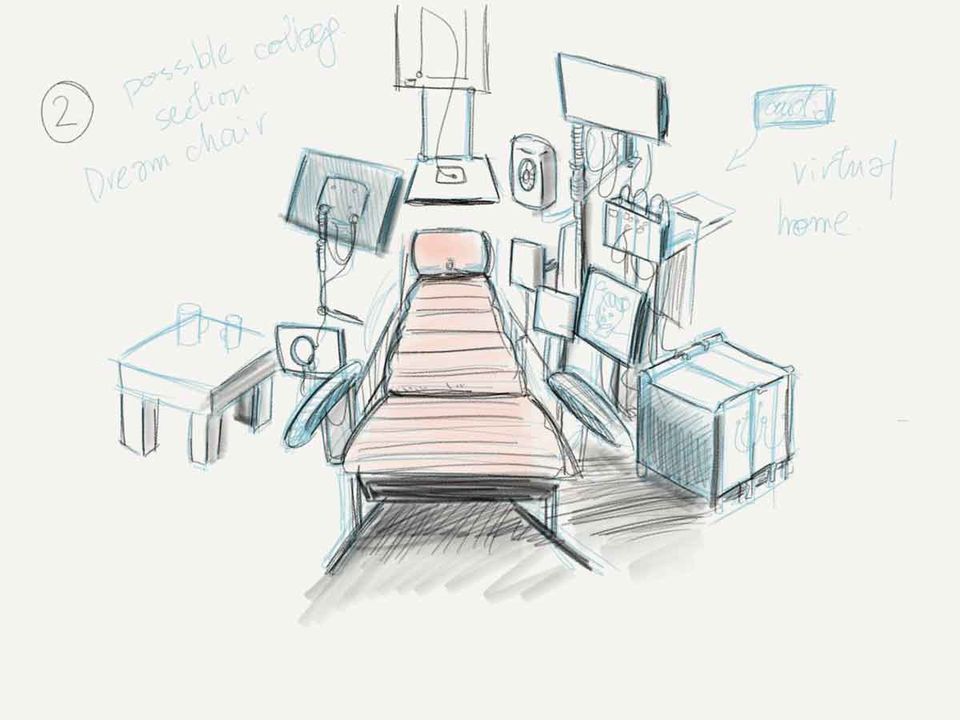 2
possible collage
section
Dream chair
audio
virtual
home.